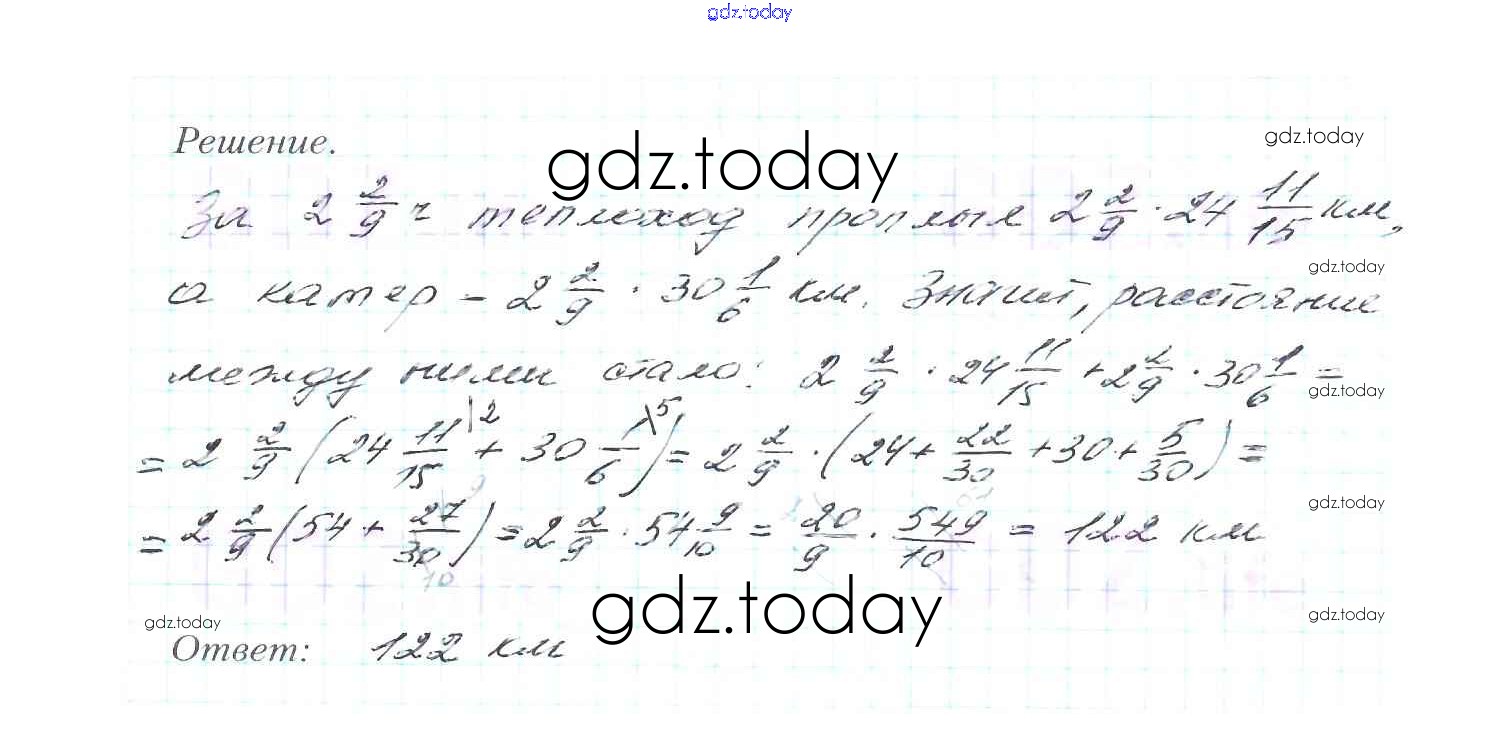 gdz.today
Решение.
gdz.today
gdz.today
За 2 2/9 ч теплоход проплыл 2 2/9 · 24 11/15 км,
gdz.today
а катер – 2 2/9 · 30 1/6 км. Значит, расстояние
между ними стало: 2 2/9 · 24 11/15 + 2 2/9 · 30 1/6 =
gdz.today
= 2 2/9 (24 11/15 |2 + 30 1/6 \5) = 2 2/9 · (24 + 22/30 + 30 + 5/30) =
gdz.today
= 2 2/9 (54 + 27/30) = 2 2/9 · 54 9/10 = 20/9 · 549/10 = 122 км
gdz.today
gdz.today
gdz.today
Ответ: 122 км